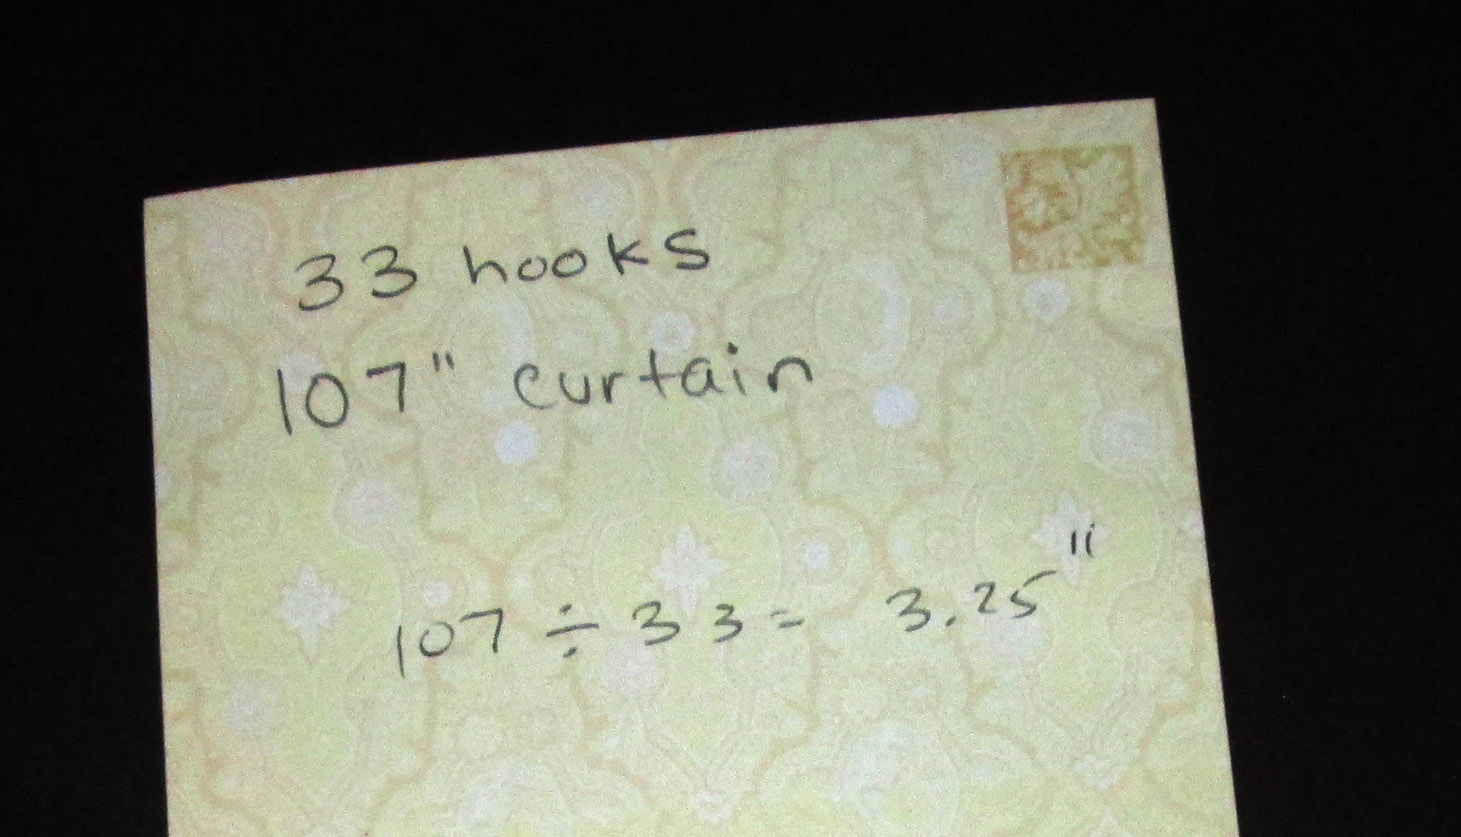 33 hooks
107" curtain
107 ÷ 33 = 3.25"